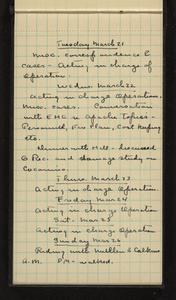 Tuesday March 21
Misc. correspondence &
cases - Acting in charge of
Operation
Wednes. March 22
Acting in charge Operation.
Misc. cases. Conversation
with E.H.C. re Apache Topics -
Personnel, Fire Plan, Cost Keeping
etc.
Dinner with Hill - discussed
G Rec. and damage study on
Coconino.
Thurs. March 23
Acting in charge Operation.
Friday Mar 24
Acting in charge Operation
Sat. Mar 25
Acting in charge Operation
Sunday Mar 26
Riding with & Calkins
A.M. P.M. - walked.